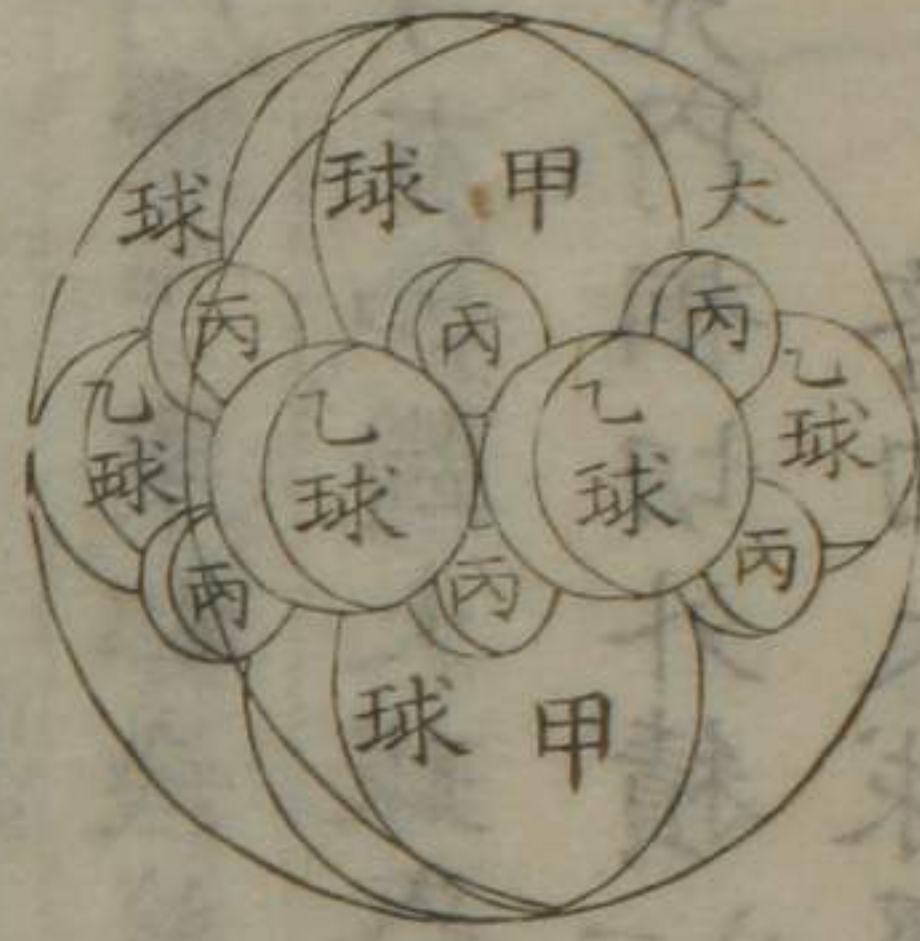 大球
甲球
丙
丙
丙
乙球
乙球
乙球
乙球
丙
丙
丙
甲球